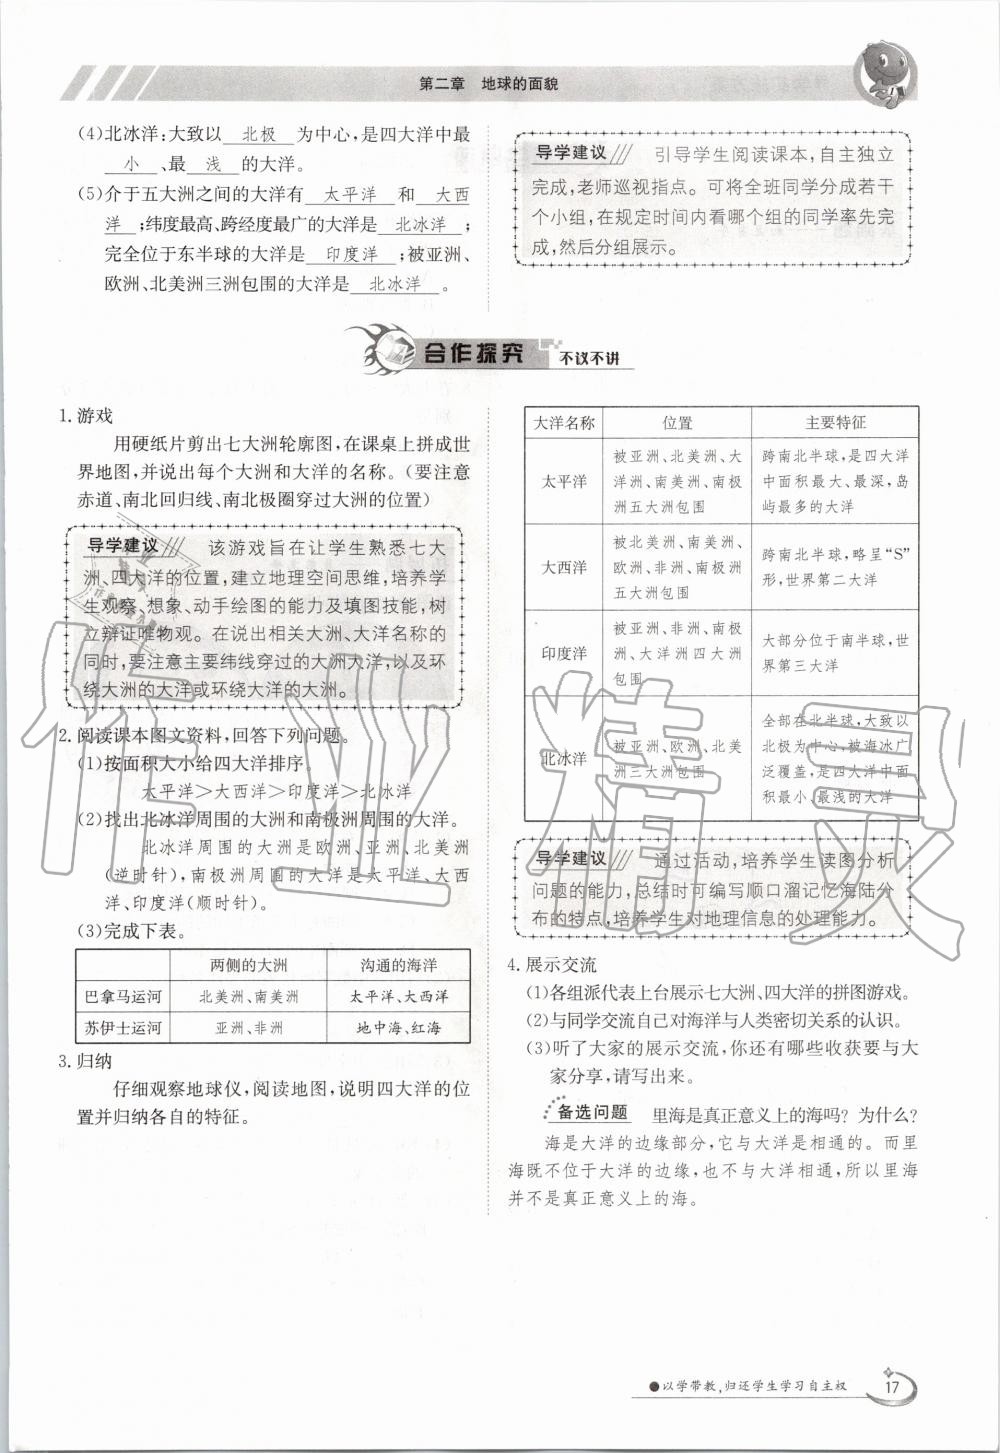 第二章　地球的面貌
(4)北冰洋:大致以 北极 为中心,是四大洋中最
小 、最 浅 的大洋。
(5)介于五大洲之间的大洋有 太平洋 和 大西
洋 ;纬度最高、跨经度最广的大洋是 北冰洋 ;
完全位于东半球的大洋是 印度洋 ;被亚洲、
欧洲、北美洲三洲包围的大洋是 北冰洋 。
导学建议 引导学生阅读课本,自主独立
完成,老师巡视指点。可将全班同学分成若干
个小组,在规定时间内看哪个组的同学率先完
成,然后分组展示。
合作探究 不议不讲
1. 游戏
用硬纸片剪出七大洲轮廓图,在课桌上拼成世
界地图,并说出每个大洲和大洋的名称。(要注意
赤道、南北回归线、南北极圈穿过大洲的位置)
导学建议 该游戏旨在让学生熟悉七大
洲、四大洋的位置,建立地理空间思维,培养学
生观察、想象、动手绘图的能力及填图技能,树
立辩证唯物观。在说出相关大洲、大洋名称的
同时,要注意主要纬线穿过的大洲大洋,以及环
绕大洲的大洋或环绕大洋的大洲。
2. 阅读课本图文资料,回答下列问题。
(1)按面积大小给四大洋排序。
太平洋>大西洋>印度洋>北冰洋
(2)找出北冰洋周围的大洲和南极洲周围的大洋。
北冰洋周围的大洲是欧洲、亚洲、北美洲
(逆时针),南极洲周围的大洋是太平洋、大西
洋、印度洋(顺时针)。
(3)完成下表。
两侧的大洲 沟通的海洋
巴拿马运河 北美洲、南美洲 太平洋、大西洋
苏伊士运河 亚洲、非洲 地中海、红海
3. 归纳
仔细观察地球仪,阅读地图,说明四大洋的位
置并归纳各自的特征。
大洋名称 位置 主要特征
太平洋
被亚洲、北美洲、大
洋洲、南美洲、南极
洲五大洲包围
跨南北半球,是四大洋
中面积最大、最深,岛
屿最多的大洋
大西洋
被北美洲、南美洲、
欧洲、非洲、南极洲
五大洲包围
跨南北半球,略呈“S”
形,世界第二大洋
印度洋
被亚洲、非洲、南极
洲、大洋洲四大洲
包围
大部分位于南半球,世
界第三大洋
北冰洋
被亚洲、欧洲、北美
洲三大洲包围
全部在北半球,大致以
北极为中心,被海冰广
泛覆盖,是四大洋中面
积最小、最浅的大洋
导学建议 通过活动,培养学生读图分析
问题的能力,总结时可编写顺口溜记忆海陆分
布的特点,培养学生对地理信息的处理能力。
4. 展示交流
(1)各组派代表上台展示七大洲、四大洋的拼图游戏。
(2)与同学交流自己对海洋与人类密切关系的认识。
(3)听了大家的展示交流,你还有哪些收获要与大
家分享,请写出来。
备选问题 里海是真正意义上的海吗?为什么?
海是大洋的边缘部分,它与大洋是相通的。而里
海既不位于大洋的边缘,也不与大洋相通,所以里海
并不是真正意义上的海。
●以学带教,归还学生学习自主权
17
作业精灵